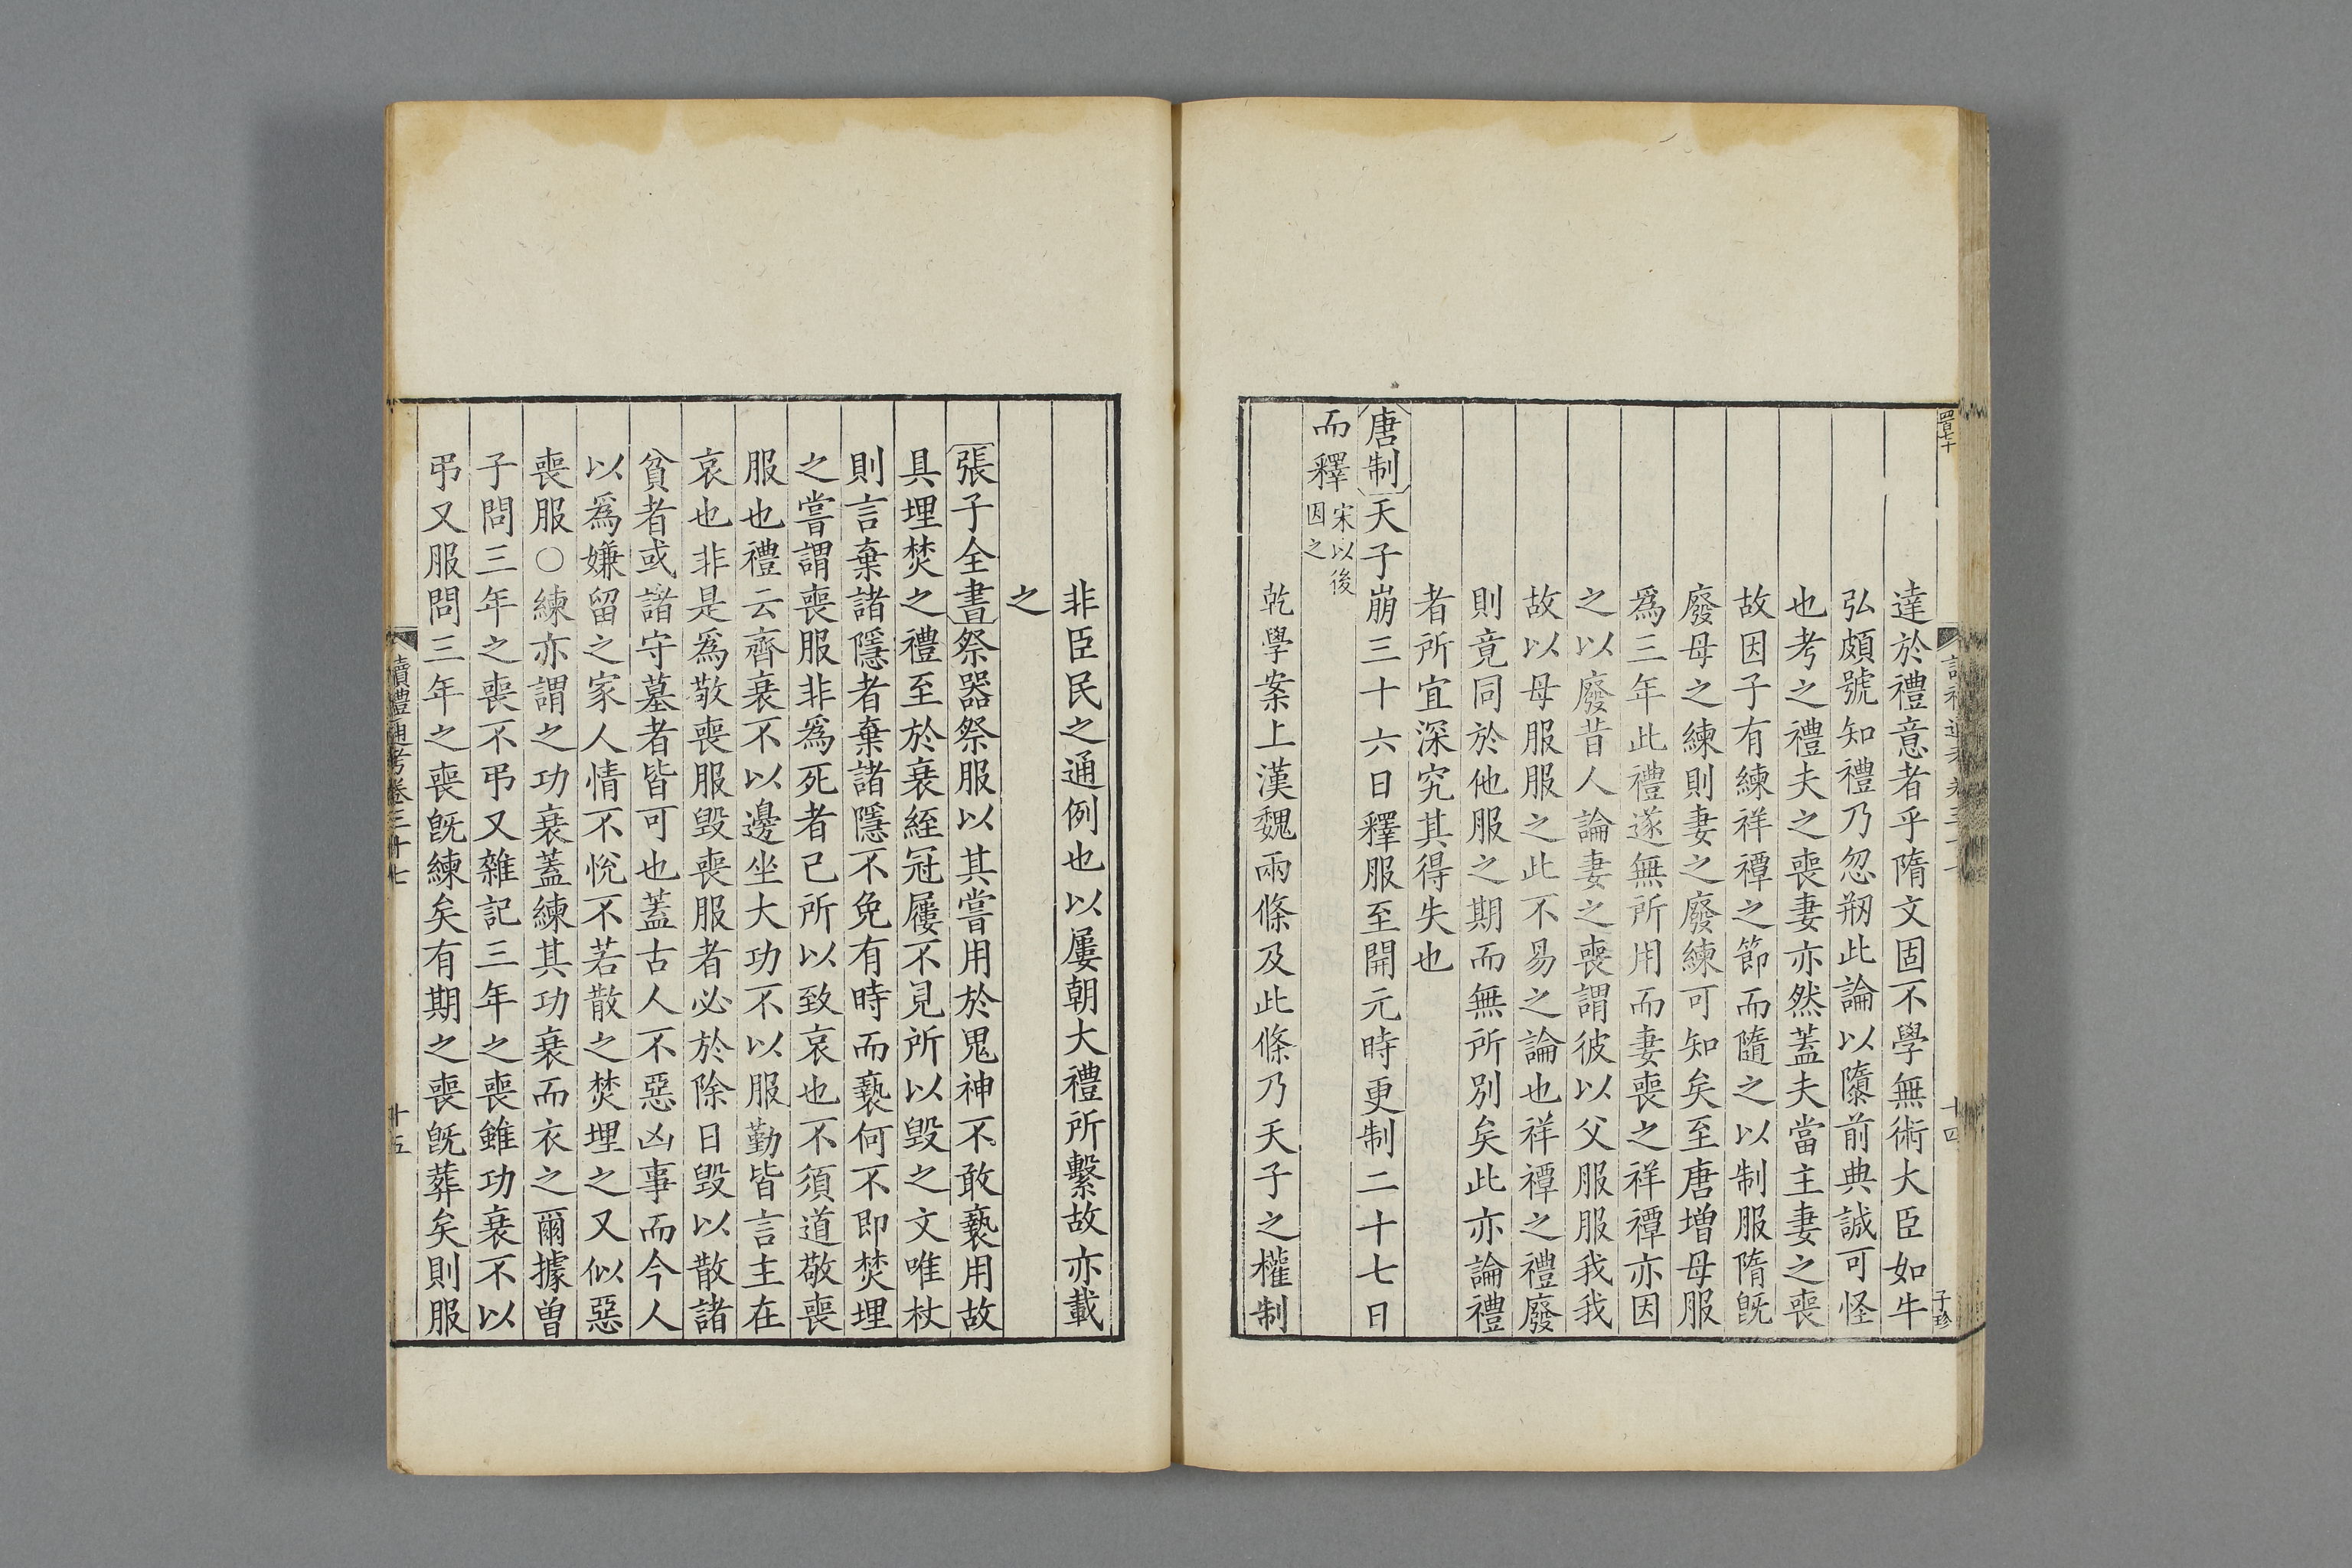 四百七十
十四
子珍
達於禮意者乎隋文固不學無術大臣如牛
弘頗號知禮乃忽剏此論以隳前典誠可怪
也考之禮夫之喪妻亦然蓋夫當主妻之喪
故因子有練祥禫之節而隨之以制服隋旣
廢母之練則妻之廢練可知矣至唐增母服
爲三年此禮遂無所用而妻喪之祥禫亦因
之以廢昔人論妻之喪謂彼以父服服我我
故以母服服之此不易之論也祥禫之禮廢
則竟同於他服之期而無所別矣此亦論禮
者所宜深究其得失也
唐制天子崩三十六日釋服至開元時更制二十七日
而釋宋以後因之
乾學案上漢魏兩條及此條乃天子之權制
非臣民之通例也以屢朝大禮所繫故亦載
之
張子全書祭器祭服以其嘗用於鬼神不敢褻用故
具埋焚之禮至於衰絰冠屨不見所以毀之文唯杖
則言棄諸隱者棄諸隱不免有時而褻何不即焚埋
之嘗謂喪服非爲死者己所以致哀也不須道敬喪
服也禮云齊衰不以邊坐大功不以服勤皆言主在
哀也非是爲敬喪服毀喪服者必於除日毀以散諸
貧者或諸守墓者皆可也蓋古人不惡凶事而今人
以爲嫌留之家人情不悅不若散之焚埋之又似惡
喪服○練亦謂之功衰蓋練其功衰而衣之爾據曾
子問三年之喪不弔又雜記三年之喪雖功衰不以
弔又服問三年之喪旣練矣有期之喪旣葬矣則服
讀禮通考卷三十七
十五